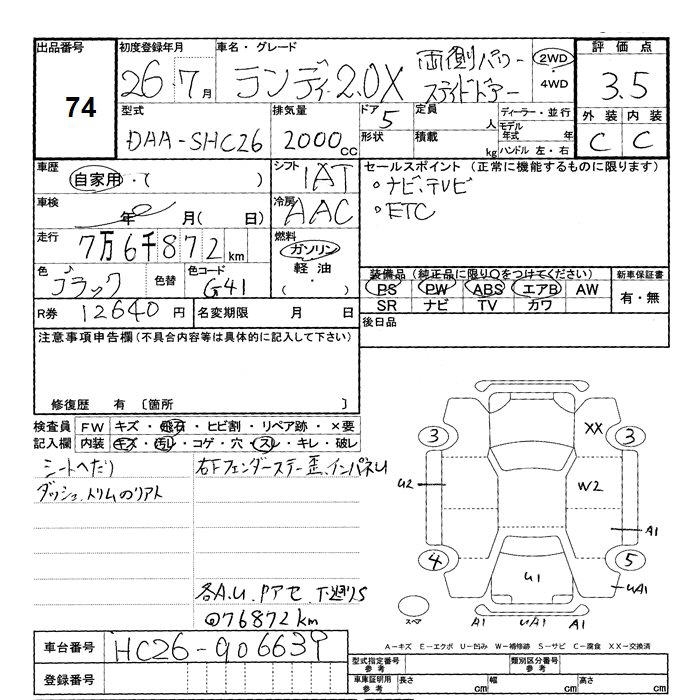 出品番号
74
初度登録年月
26 7月
車名・グレード
ランディ 2.0X 両側パワー
スライドドアー
2WD
・
4WD
評価点
3.5
外装 内装
C C
型式
DAA-SHC26
排気量
2000cc
ドア 5
形状
定員 人
積載 kg
ディーラー・並行
モデル年式 年
ハンドル 左・右
車歴
自家用・( )
シフト
IAT
セールスポイント(正常に機能するものに限ります)
。ナビ、テレビ
。ETC
車検
年 月( 日)
冷房
AAC
走行
7万6千872km
燃料
ガソリン
軽油
( ・ )
色
ブラック
色替
色コード
G41
装備品(純正品に限り○をつけてください)
PS PW ABS エアB AW
SR ナビ TV カワ
新車保証書
有・無
R券 12640円
名変期限 月 日
後日品
注意事項申告欄(不具合内容等は具体的に記入して下さい)
修復歴 有 〔箇所 〕
検査員 FW キズ・飛石・ヒビ割・リペア跡・×要
記入欄 内装 キズ・汚レ・コゲ・穴・スレ・キレ・破レ
シートへたり
ダッシュ、トリムのリアト
右Fフェンダーステー歪、インパネU
各A.U、Pアセ、下廻りS
@76872km
3 XX 3
U2 W2
A1
4 5
U1 UA1
スペア A1 UA1 A1
A-キズ E-エクボ U-凹み W-補修跡 S-サビ C-腐食 XX-交換済
車台番号 HC26-906639
登録番号
型式指定番号 参考
類別区分番号 参考
車庫証明用 参考 長さ cm 幅 cm 高さ cm